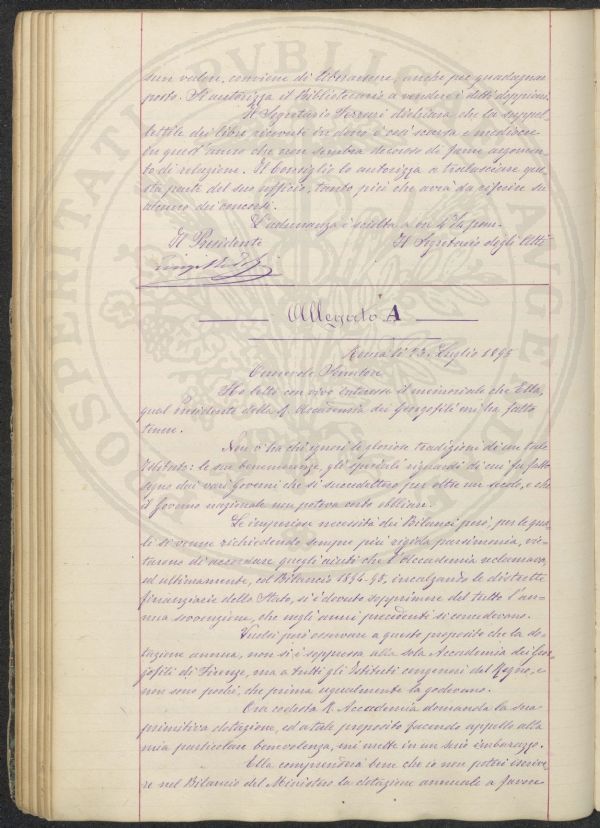 sun valore, conviene di liberarsene, anche per guadagnar
posto. Si autorizza il Bibliotecario a vendere i detti doppioni.
Il Segretario Ferrari dichiara che la suppel
lettile dei libri ricevuti in dono è così scarsa e mediocre
in quest'anno che non sembra decoroso di farne argomen
to di relazione. Il Consiglio lo autorizza a tralasciare que
sta parte del suo ufficio, tanto più che avrà da riferire su
dei concorsi.
L'adunanza è sciolta a ore 4 1/4 pom.
Il Presidente Il Segretario degli Atti
Allegato A
Roma li 23 Luglio 1895
Onorevole Senatore
Ho letto con vivo interesse il memoriale che Ella,
qual Presidente della R. Accademia dei Georgofili mi ha fatto
tenere.
Non v'ha chi ignori le gloriose tradizioni di un tale
Istituto: le sue benemerenze, gli speciali riguardi di cui fu fatto
segno dai vari Governi che si succedettero per oltre un secolo, e che
il Governo nazionale non poteva certo obliare.
Le imperiose necessità dei Bilanci però, per le qua
li si venne richiedendo sempre più rigida parsimonia, vie
tarono di accordare quegli aiuti che l'Accademia reclamava,
ed ultimamente, col Bilancio 1894-95, incalzando le distrette
finanziarie dello Stato, si è dovuto sopprimere del tutto l'an
nua sovvenzione, che negli anni precedenti si concedevano.
Puossi però osservare a questo proposito che la do
tazione annua, non si è soppressa alla sola Accademia dei Geor
gofili di Firenze, ma a tutti gli Istituti congeneri del Regno, e
non sono pochi, che prima ugualmente la godevano.
Ora codesta R. Accademia domanda la sua
primitiva dotazione, ed a tale proposito facendo appello alla
mia particolare benevolenza, mi mette in un serio imbarazzo.
Ella comprenderà bene che io non potrei inscrive
re nel Bilancio del Ministero la dotazione annuale a favore